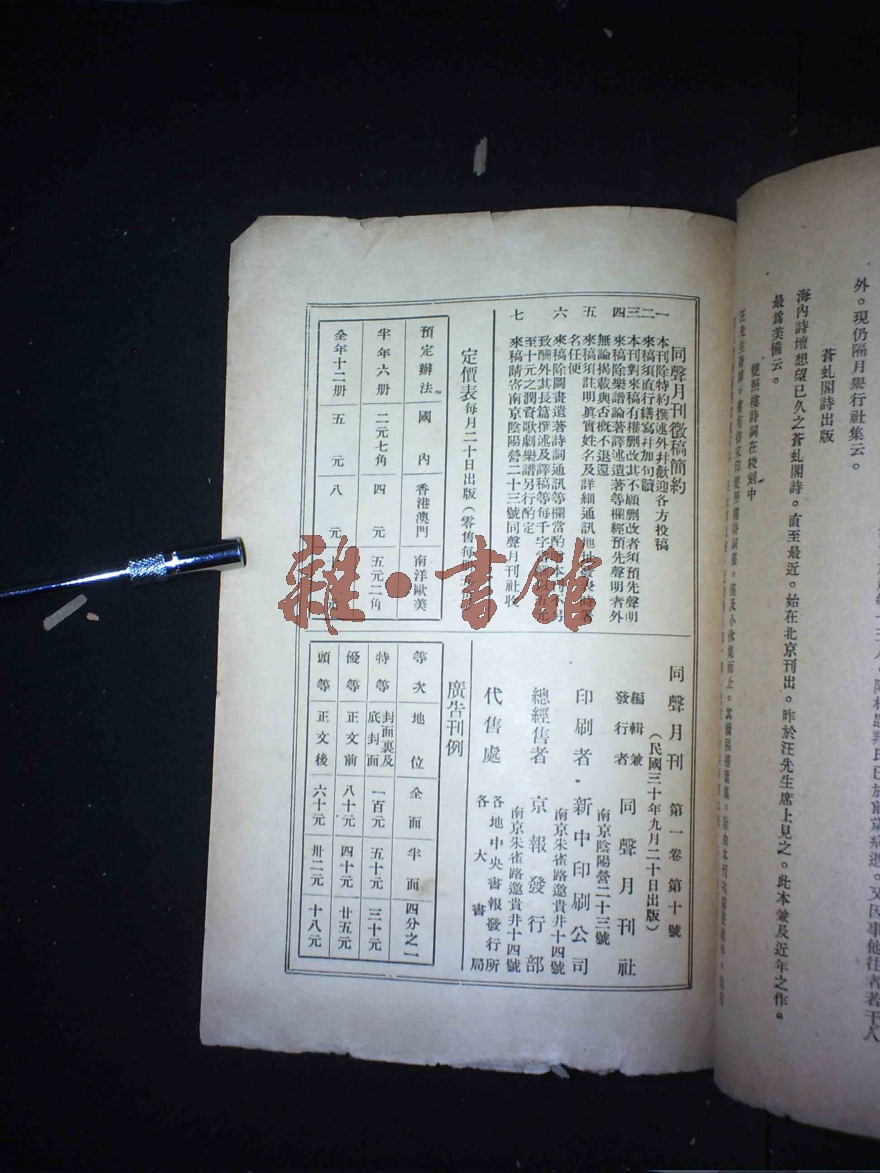 外。現仍隔月舉行社集云。
蒼虬閣詩出版
海內詩壇想望已久之蒼虬閣詩。直至最近。始在北京刊出。昨於汪先生席上見之。此本兼及近年之作。
最爲美備云。
雙照樓詩詞在校刻中
同聲月刊徵稿簡約
一 本刊除特約撰述外幷歡迎各方投稿
二 來稿須直行繕寫幷加句讀
三 本刊對來稿有權刪改其不願刪改者須預先聲明
四 來稿除樂譜論著譯述遺著等欄經預先聲明者外
無論揭載與否概不退還
五 來稿須註明眞實姓名及詳細通訊地址
名任便
六 來稿除圖畫遺著詩詞通訊等欄當酌
致酬外其長篇撰述及譯稿等每千字
至十元之潤資歌劇樂譜另行酌定
七 來稿請寄南京陰陽營二十三號同聲月刊社收
定價表 每月二十日出版(零售每
預定辦法 國內 香港澳門 南洋歐美
半年六册 二元七角 四元 五元二角
全年十二册 五元 八元
同聲月刊 第一卷第十號
(民國三十年九月二十日出版)
編輯兼發行者 同聲月刊社
南京陰陽營二十三號
印刷者 新中印刷公司
南京朱雀路邀貴井十四號
總經售者 京報發行部
南京朱雀路邀貴井十四號
代售處 各地中央書報發行所
各大書局
廣告刊例
等次 地位 全面 半面 四分之一
特等 封面裏及底封面 一百元 五十元 三十元
優等 正文前 八十元 四十元 廿五元
頭等 正文後 六十元 卅二元 十八元
雜·書館